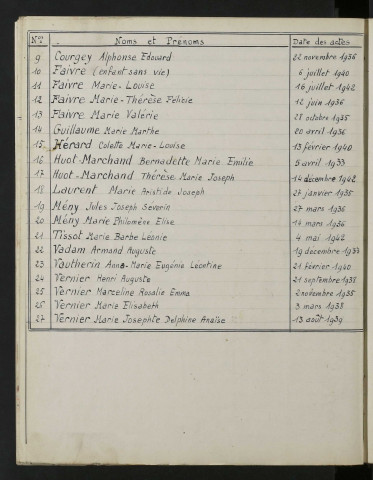 Nos Noms et Prénoms Date des actes
9 Courgey Alphonse Edouard 22 novembre 1936
10 Faivre (enfant sans vie) 6 juillet 1940
11 Faivre Marie-Louise 16 juillet 1942
12 Faivre Marie-Thérèse Félicie 12 juin 1936
13 Faivre Marie Valérie 28 octobre 1935
14 Guillaume Marie Marthe 20 avril 1936
15 Hérard Colette Marie-Louise 13 février 1940
16 Huot-Marchand Bernadette Marie Emilie 5 avril 1933
17 Huot-Marchand Thérèse Marie Joseph 14 décembre 1942
18 Laurent Marie Aristide Joseph 27 janvier 1935
19 Mény Jules Joseph Séverin 27 mars 1936
20 Mény Marie Philomène Elise 14 mars 1936
21 Tissot Marie Barbe Léonie 4 mai 1942
22 Vadam Armand Auguste 19 décembre 1937
23 Vautherin Anna-Marie Eugénie Léontine 21 février 1940
24 Vernier Henri Auguste 21 septembre 1938
25 Vernier Marceline Rosalie Emma 2 novembre 1935
26 Vernier Marie Elisabeth 3 mars 1938
27 Vernier Marie Josephte Delphine Anaïse 13 août 1939